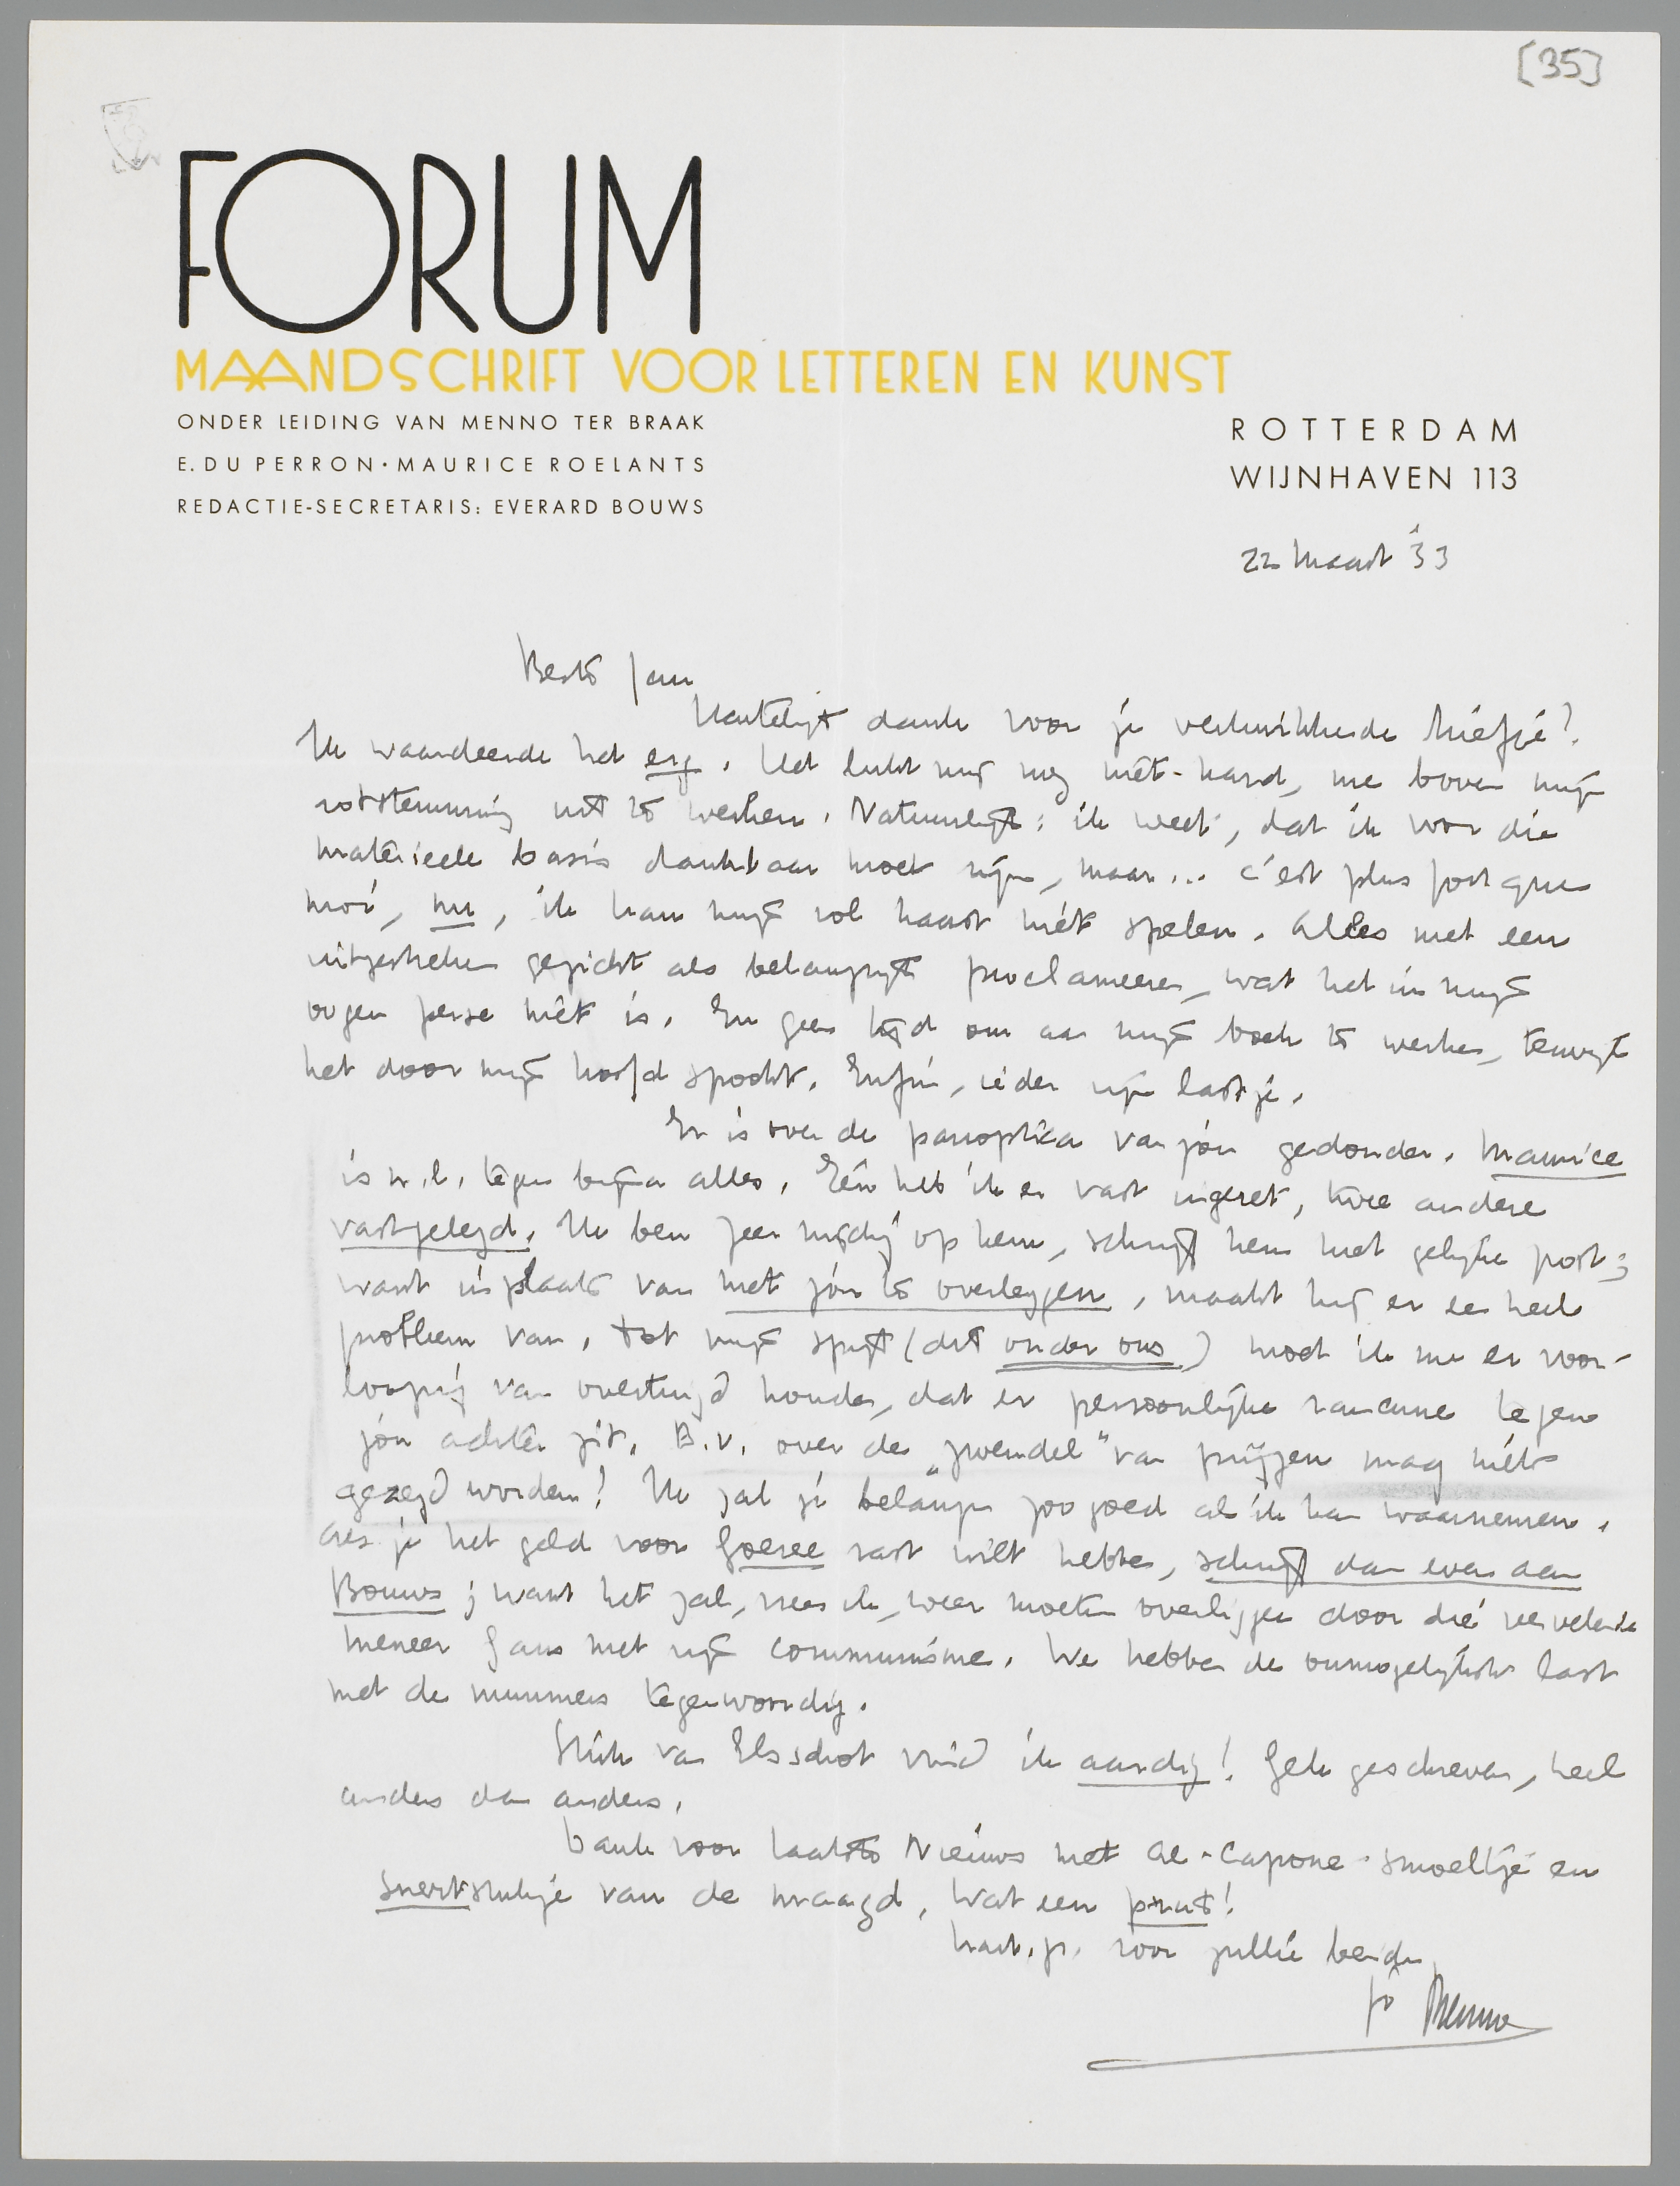 [35]
FORUM
MAANDSCHRIFT VOOR LETTEREN EN KUNST
ONDER LEIDING VAN MENNO TER BRAAK
E. DU PERRON · MAURICE ROELANTS
REDACTIE-SECRETARIS: EVERARD BOUWS
ROTTERDAM
WIJNHAVEN 113
22 Maart '33
Beste Jan
Hartelijk dank voor je verkwikkende briefje!
Ik waardeerde het erg. Het lukt mij nog niet-hard, me boven mijn
rotstemming uit te werken. Natuurlijk: ik weet, dat ik voor die
materieele basis dankbaar moet zijn, maar... c'est plus fort que
moi, nu, ik kan mijn rol haast niet spelen. Alles met een
uitgestreken gezicht als belangrijk proclameeren, wat het in mijn
oogen perse niet is. En geen tijd om aan mijn boek te werken, terwijl
het door mijn hoofd spookt. Enfin, ieder zijn lastje.
Er is over de panoptica van jou gedonder. Maurice
is n.l. tegen bijna alles. Eén heb ik er vast ingezet, twee andere
vastgelegd. Ik ben zeer nijdig op hem, schrijf hem met gelijke post;
want in plaats van met jou te overleggen, maakt hij er een heel
probleem van. Tot mijn spijt (dit onder ons) moet ik me er voor-
loopig van overtuigd houden, dat er persoonlijke rancune tegen
jou achter zit. B.v. over de "zwendel" van prijzen mag niets
gezegd worden! Ik zal je belangen zoo goed als ik kan waarnemen.
Als je het geld voor Goeree vast wilt hebben, schrijf dan even aan
Bouws; want het zal, vrees ik, weer moeten overliggen door die vervelende
meneer Gans met zijn communisme. We hebben de onmogelijkste last
met de nummers tegenwoordig.
Stuk van Elsschot vind ik aardig! Gek geschreven, heel
anders dan anders.
Dank voor Laatste Nieuws met Al-Capone-smoeltje en
snertstukje van de maagd. Wat een prut!
hart. gr. voor jullie beiden,
je Menno